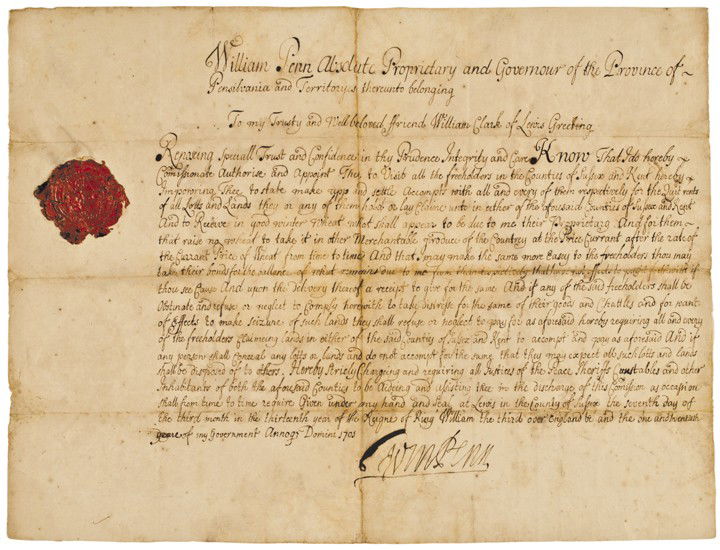 William Penn Absolute Proprietary and Governour of the Province of ~
Pensilvania and Territorys thereunto belonging
To my Trusty and Well beloved ffriend William Clark of Lewis Greeting
Reposing Speciall Trust and Confidence in thy Prudence Integrity and Care Know That I do hereby
Comissionate Authorise and Appoint Thee to Visit all the freeholders in the Counties of Sussex and Kent hereby
Impowring Thee to state make upp and settle Accompts with all and every of them respectively for the Quit rents
of all Lotts and Lands they or any of them hold or lay Claime unto in either of the aforesaid Counties of Sussex and Kent
And to Receive in good winter wheat what shall appear to be due to me their Proprietary And for them
that raise no wheat to take it in other Merchantable produce of the Country at the Price Currant after the rate of
the Currant Price of Wheat from time to time And that I may make the same more Easy to the freeholders thou may
take their bonds for the ballance of what remains due to me from them respectively that have not effects to pay
thou see Cause And upon the delivery thereof a receipt to give for the same And if any of the said freeholders shall be
Obstinate and refuse or neglect to Comply herewith to take distress for the same of their goods and Chattls and for want
of Effects to make seizure of such lands they shall refuse or neglect to pay for as aforesaid hereby requiring all and every
of the freeholders Claimeing lands in either of the said Counties of Sussex and Kent to accompt and pay as aforesaid And if
any person shall Conceal any lotts or lands and do not accompt for the same that they may expect all such lotts and lands
shall be disposed of to others. Hereby Strictly Chargeing and requiring all Justices of the Peace Sheriffs Constables and other
Inhabitants of both the aforesaid Counties to be Aideing and Assisting thee in the discharge of this Comission as occasion
shall from time to time require Given under my hand and seal at Lewis in the County of Sussex the seventh day of
the third month in the thirteenth year of the Reigne of King William the third over England &c and the one and twentieth
yeare of my Government Annoq Domini 1701
Wm Penn